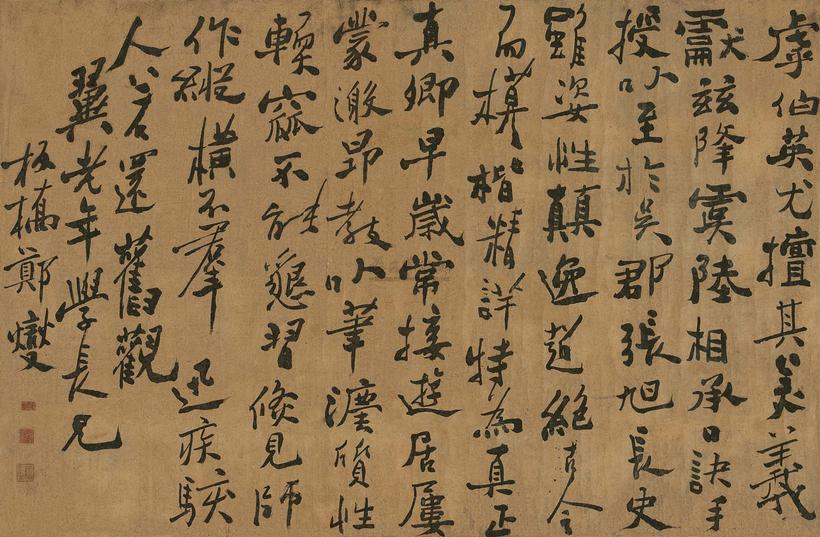 虖伯英尤擅其美羲
獻茲降虞陸相承口訣手
授以至於吳郡張旭長史
雖姿性顛逸超絕古今
而模楷精詳特為真正
真卿早歲常接遊居屢
蒙激昂教以筆灋質性
輭窳不能懇習倏見師
作縱橫不羣迅疾駭
人若還舊觀
翼老年學長兄
板橋鄭燮